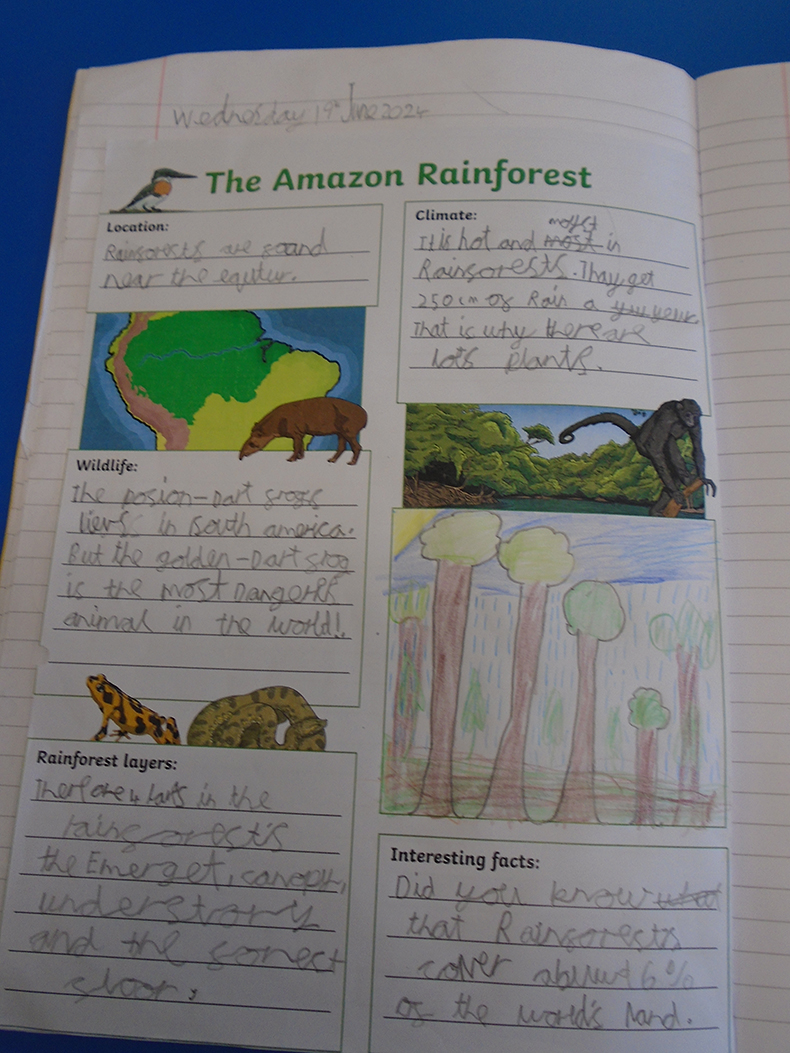 Wednesday 19th June 2024
The Amazon Rainforest
Location:
Rainsorests are sound
near the equtur.
Climate:
moyst
It is hot and most in
Rainsorests. Thay get
250cm os Rain a year.
That is why there are
lots plants.
Wildlife:
The posion-Dart srogs
lievs in south america.
But the golden-Dart srog
is the most Dangeris
animal in the world!
Rainforest layers:
Ther are 4 in the
rainsorests
the Emerget, canopy,
understory
and the sorest
sloor,
Interesting facts:
Did you know what
that Rainsorests
cover abuwt 6%
os the world's land.